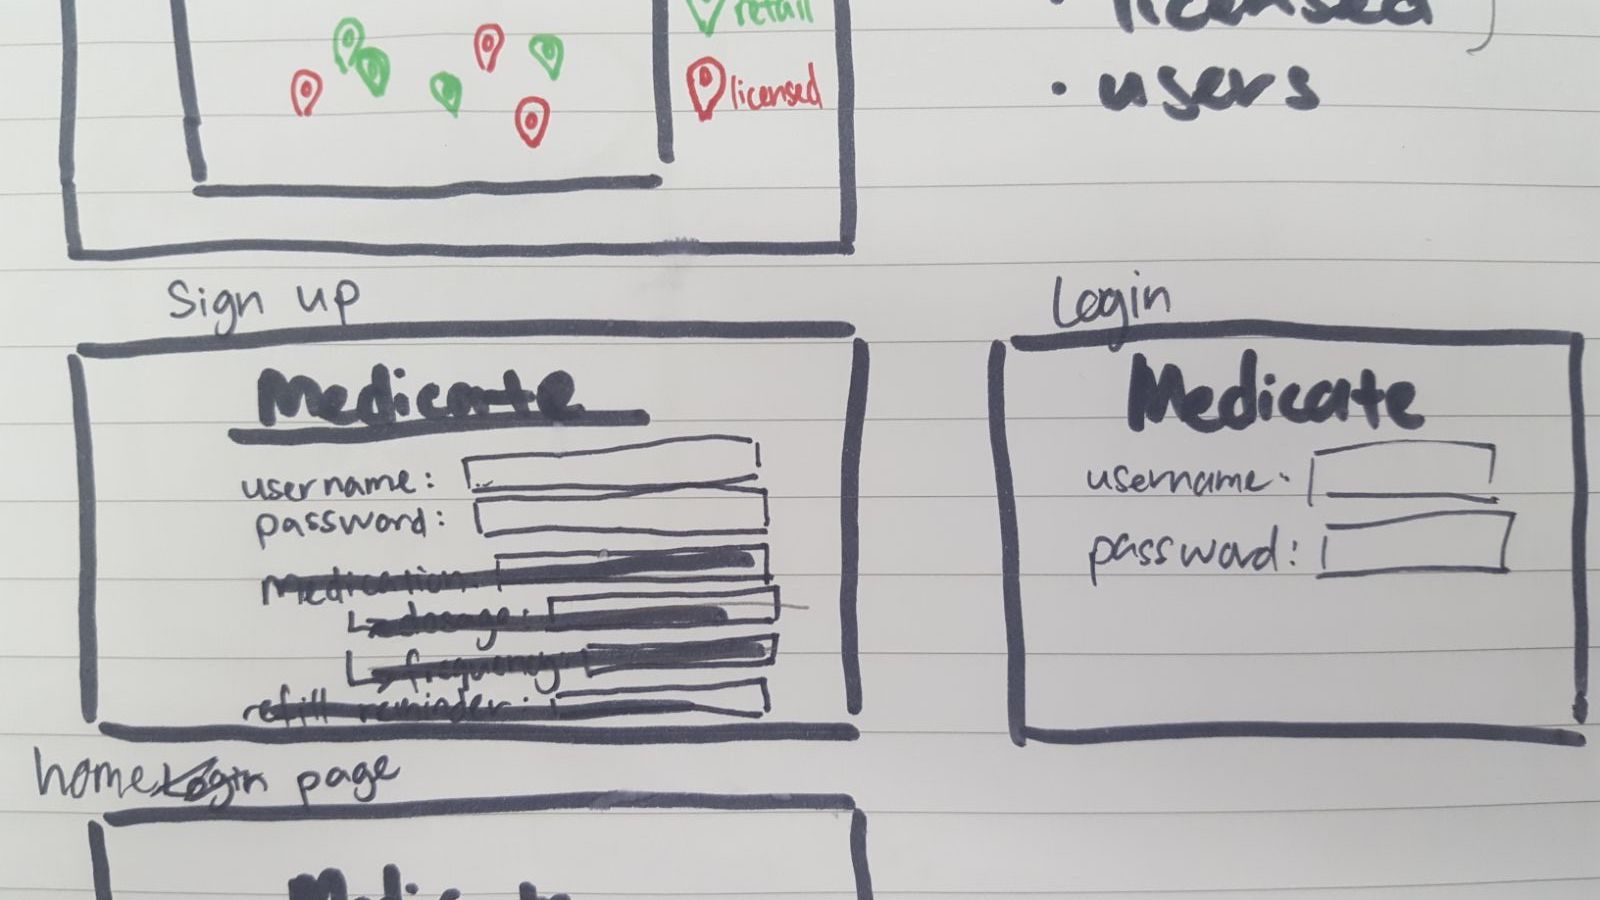 retail
licensed
licensed
• users
Sign up
Medicate
username:
password:
medication:
↳ dosage:
↳ frequency:
refill reminder:
Login
Medicate
username:
password:
home Login page
Medicate